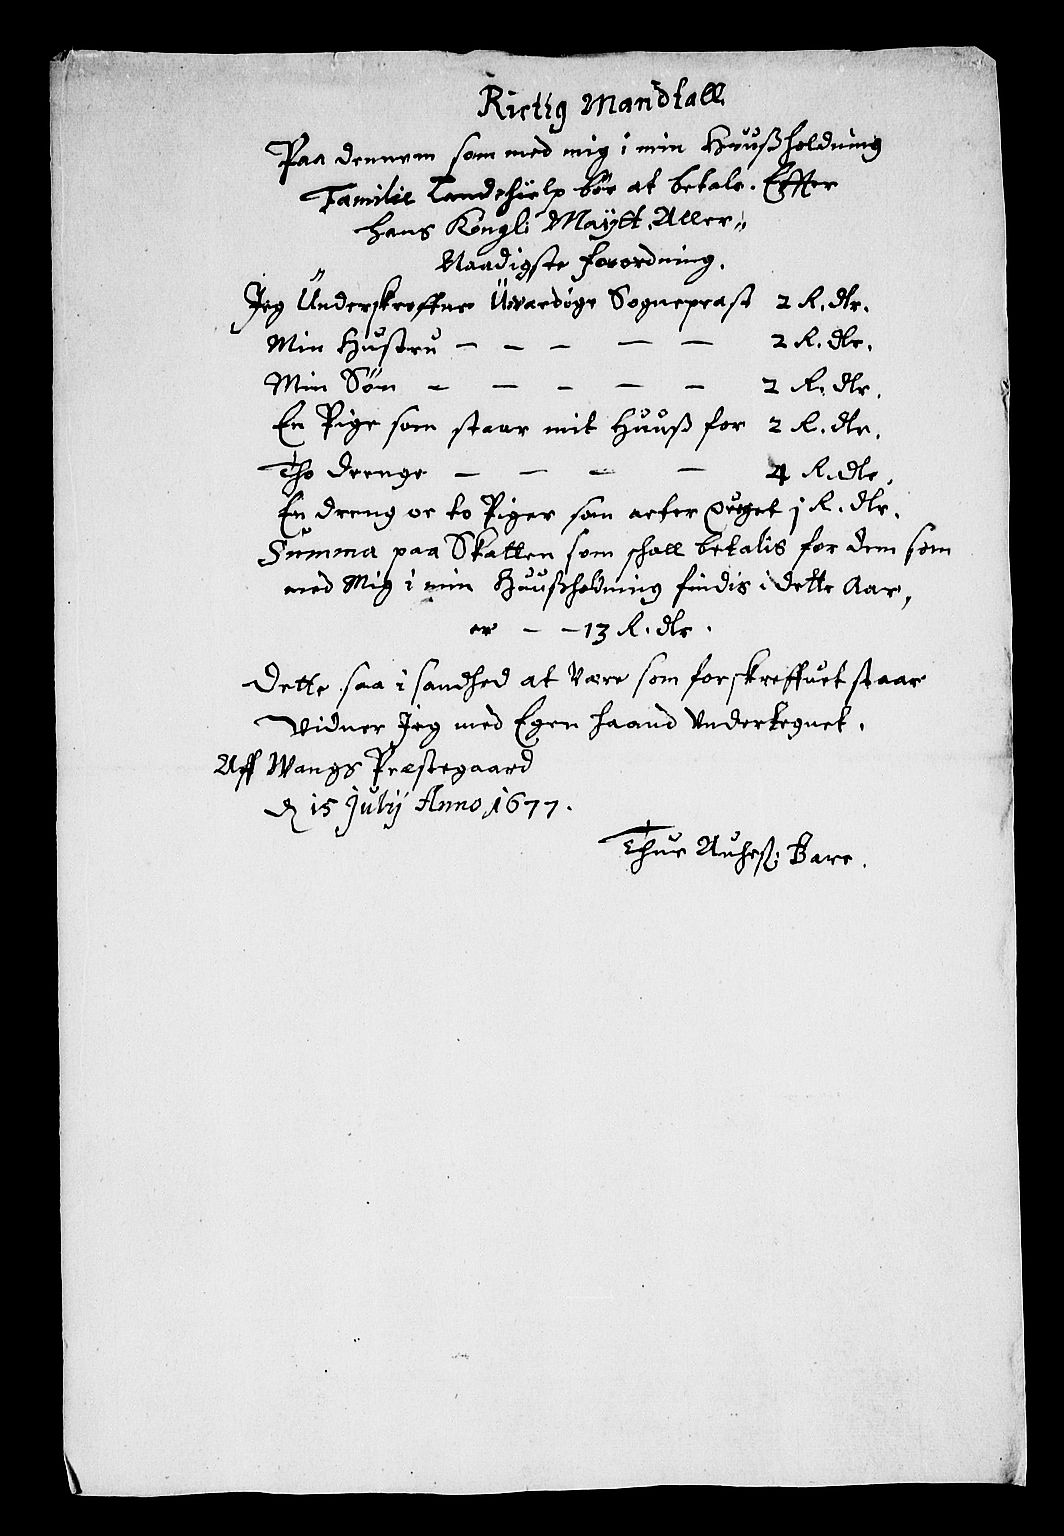 Rictig Mandtall
Paa dennem som med mig i min Huußholdning
Familie Landehielp bør at betale. Effter
hans Kongli Maÿtt. Aller„
Naadigste forordning.
Jeg Ünderskreffne Üwærdøge Sogneprest 2 R. dlr.
Min Hustru — — — — — 2 R. dlr.
Min Søn — — — — — 2 R. dlr.
En Pige som staar mit Huuß for 2 R. dlr.
Tho drenge — — — — 4 R. dlr.
En dreng oc to Piger som acter 1 R. dlr.
Summa paa Skatten som schall betalis for dem som
med Mig i min Huußholdning findis i dette Aar,
er — — 13 R. dlr.
Dette saa i sandhed at Være som forskreffuet staar
Vidner Jeg med Egen haand Vndertegnet.
Aff Wangs Præstegaard
d 15 Julij Anno 1677.
Thue